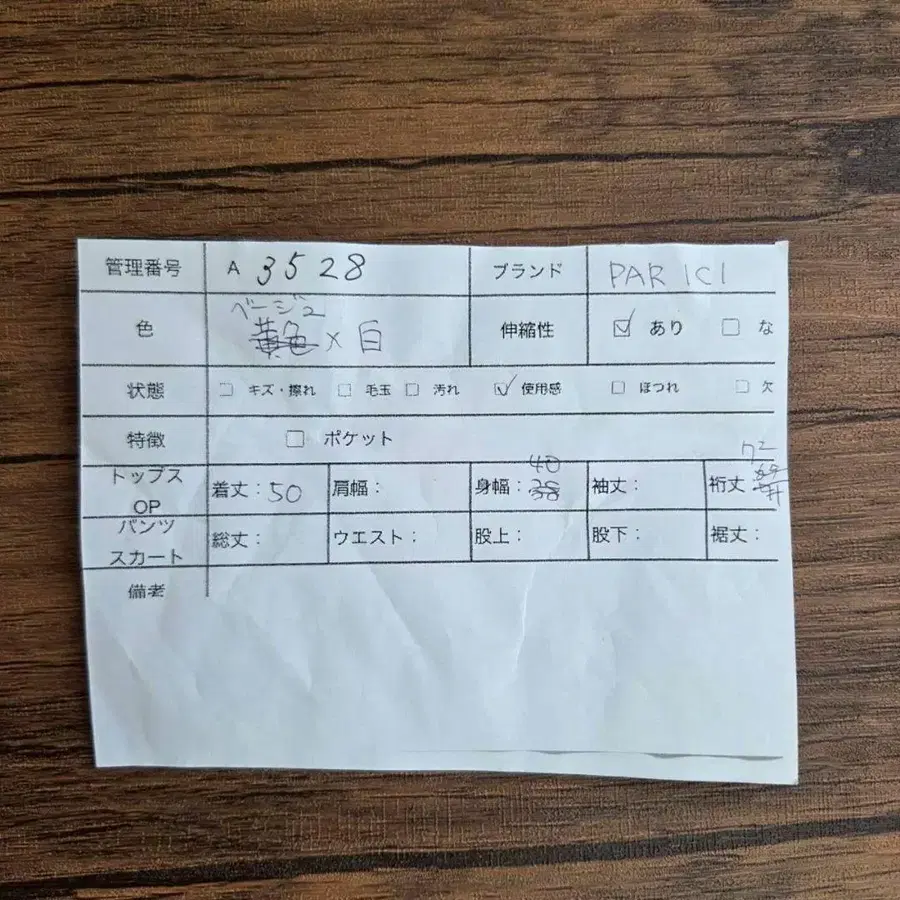 管理番号 A 3528 ブランド PAR ICI
ベージュ
色 黄色×白 伸縮性 あり な
状態 キズ・擦れ 毛玉 汚れ 使用感 ほつれ 欠
特徴 ポケット
40 72
トップス
OP 着丈：50 肩幅： 身幅：38 袖丈： 裄丈
パンツ
スカート 総丈： ウエスト： 股上： 股下： 裾丈：
備考